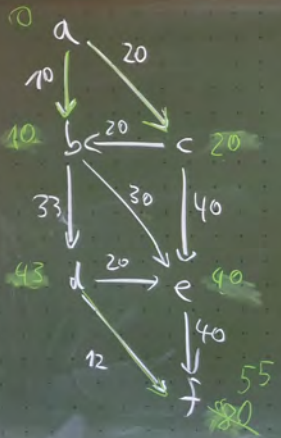 0 a
10 20
10 b 20 c 20
33 30 40
43 d 20 e 40
12 40
f 55
80